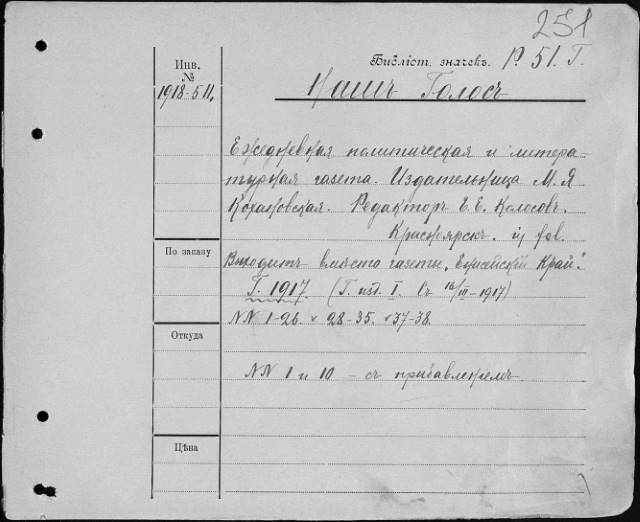 251
Инв.
№
1918-511,
Библіот. значекъ. Р. 51. Г.
Нашъ Голосъ
Ежедневная политическая и литера-
турная газета. Издательница М. Я
Кохановская. Редакторъ Е. Е. Колосовъ.
Красноярскъ. in fol.
По заказу
Выходитъ вмѣсто газеты „Енисейскій Край".
Г. 1917. (Г. изд. I. Съ 16/III-1917)
NN 1-26. * 28-35. * 37-38.
Откуда
NN 1 и 10 - съ прибавленіемъ.
Цѣна